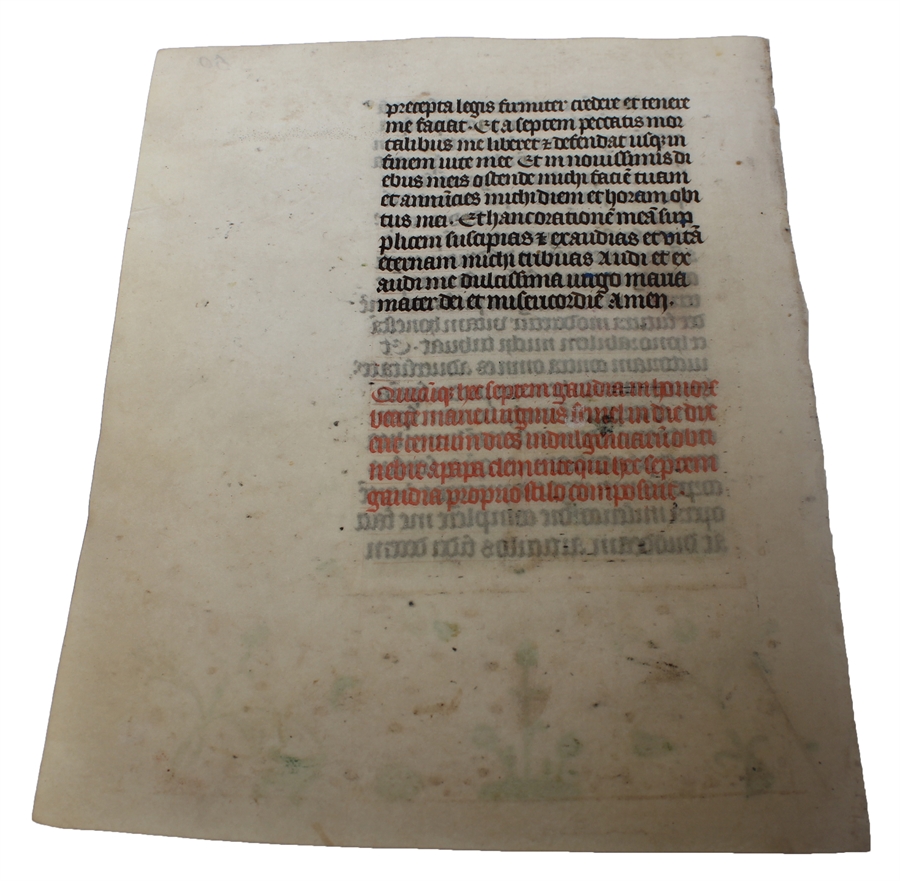 precepta legis firmiter credere et tenere
me faciat · Et a septem peccatis mor
talibus me liberet ⁊ defendat usqꝫ in
finem uite mee Et in nouissimis di
ebus meis ostende michi faciē tuam
et annūcies michi diem et horam obi
tus mei · Et hanc orationē meā sup
plicem suscipias ⁊ exaudias et vitā
eternam michi tribuas Audi et ex
audi me dulcissima uirgo maria
mater dei et misericordie Amen ·
hec septem gaudia in honore
marie uirginis semel in die dixe
centum dies indulgenciarū obti
nebit a papa clemente qui hec septem
gaudia proprio stilo composuit ·